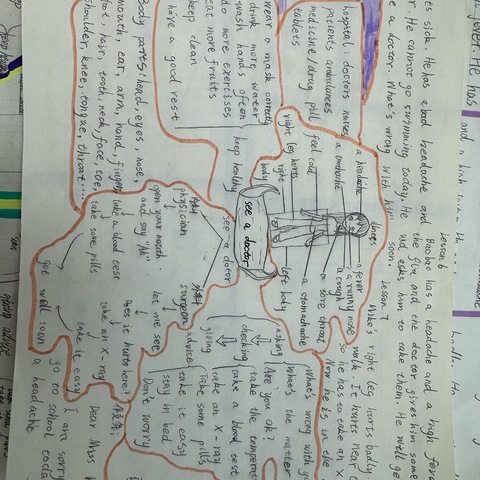 Lesson 6
es sick. He has a bad headache and
r. He cannot go swimming today. He
e a doctor. What's wrong with him
Baobao has a headache and a high feve
the flu and the doctor gives him some
and asks him to take them. He will ge
soon.
Lesson 7
Mike's right leg hurts badly.
walk. It hurts near
so he has to take an X
Now he is in the
hospital: doctors nurses
patients ambulances
medicine/drug pill
tablets
illness
a headache
a toothache
feel cold
leg hurts
right
right
body
a fever
a runny nose
a cough
a sore throat
a stomachache
left body
see a doctor
see a doctor
keep healthy
wear a mask correctly
drink more water
wash hands often
do more exercises
eat more fruits
keep clean
have a good rest
Body parts: head, eyes, nose,
mouth, ear, arm, hand, finger,
foot, hair, tooth, neck, face, toe,
shoulder, knee, tongue, throat...
physician
open your mouth
and say "Ah"
take a blood test
take some pills
get well soon
surgeon
Let me see
Does it hurt here?
take an X-ray
take it easy
asking
checking
giving
advice
What's wrong with yo
What's the matter
Are you ok?
take the temperat
take a blood test
take an X-ray
take some pills
take it easy
stay in bed
Don't worry
Dear Miss
I am sorry
go to school today
a headache